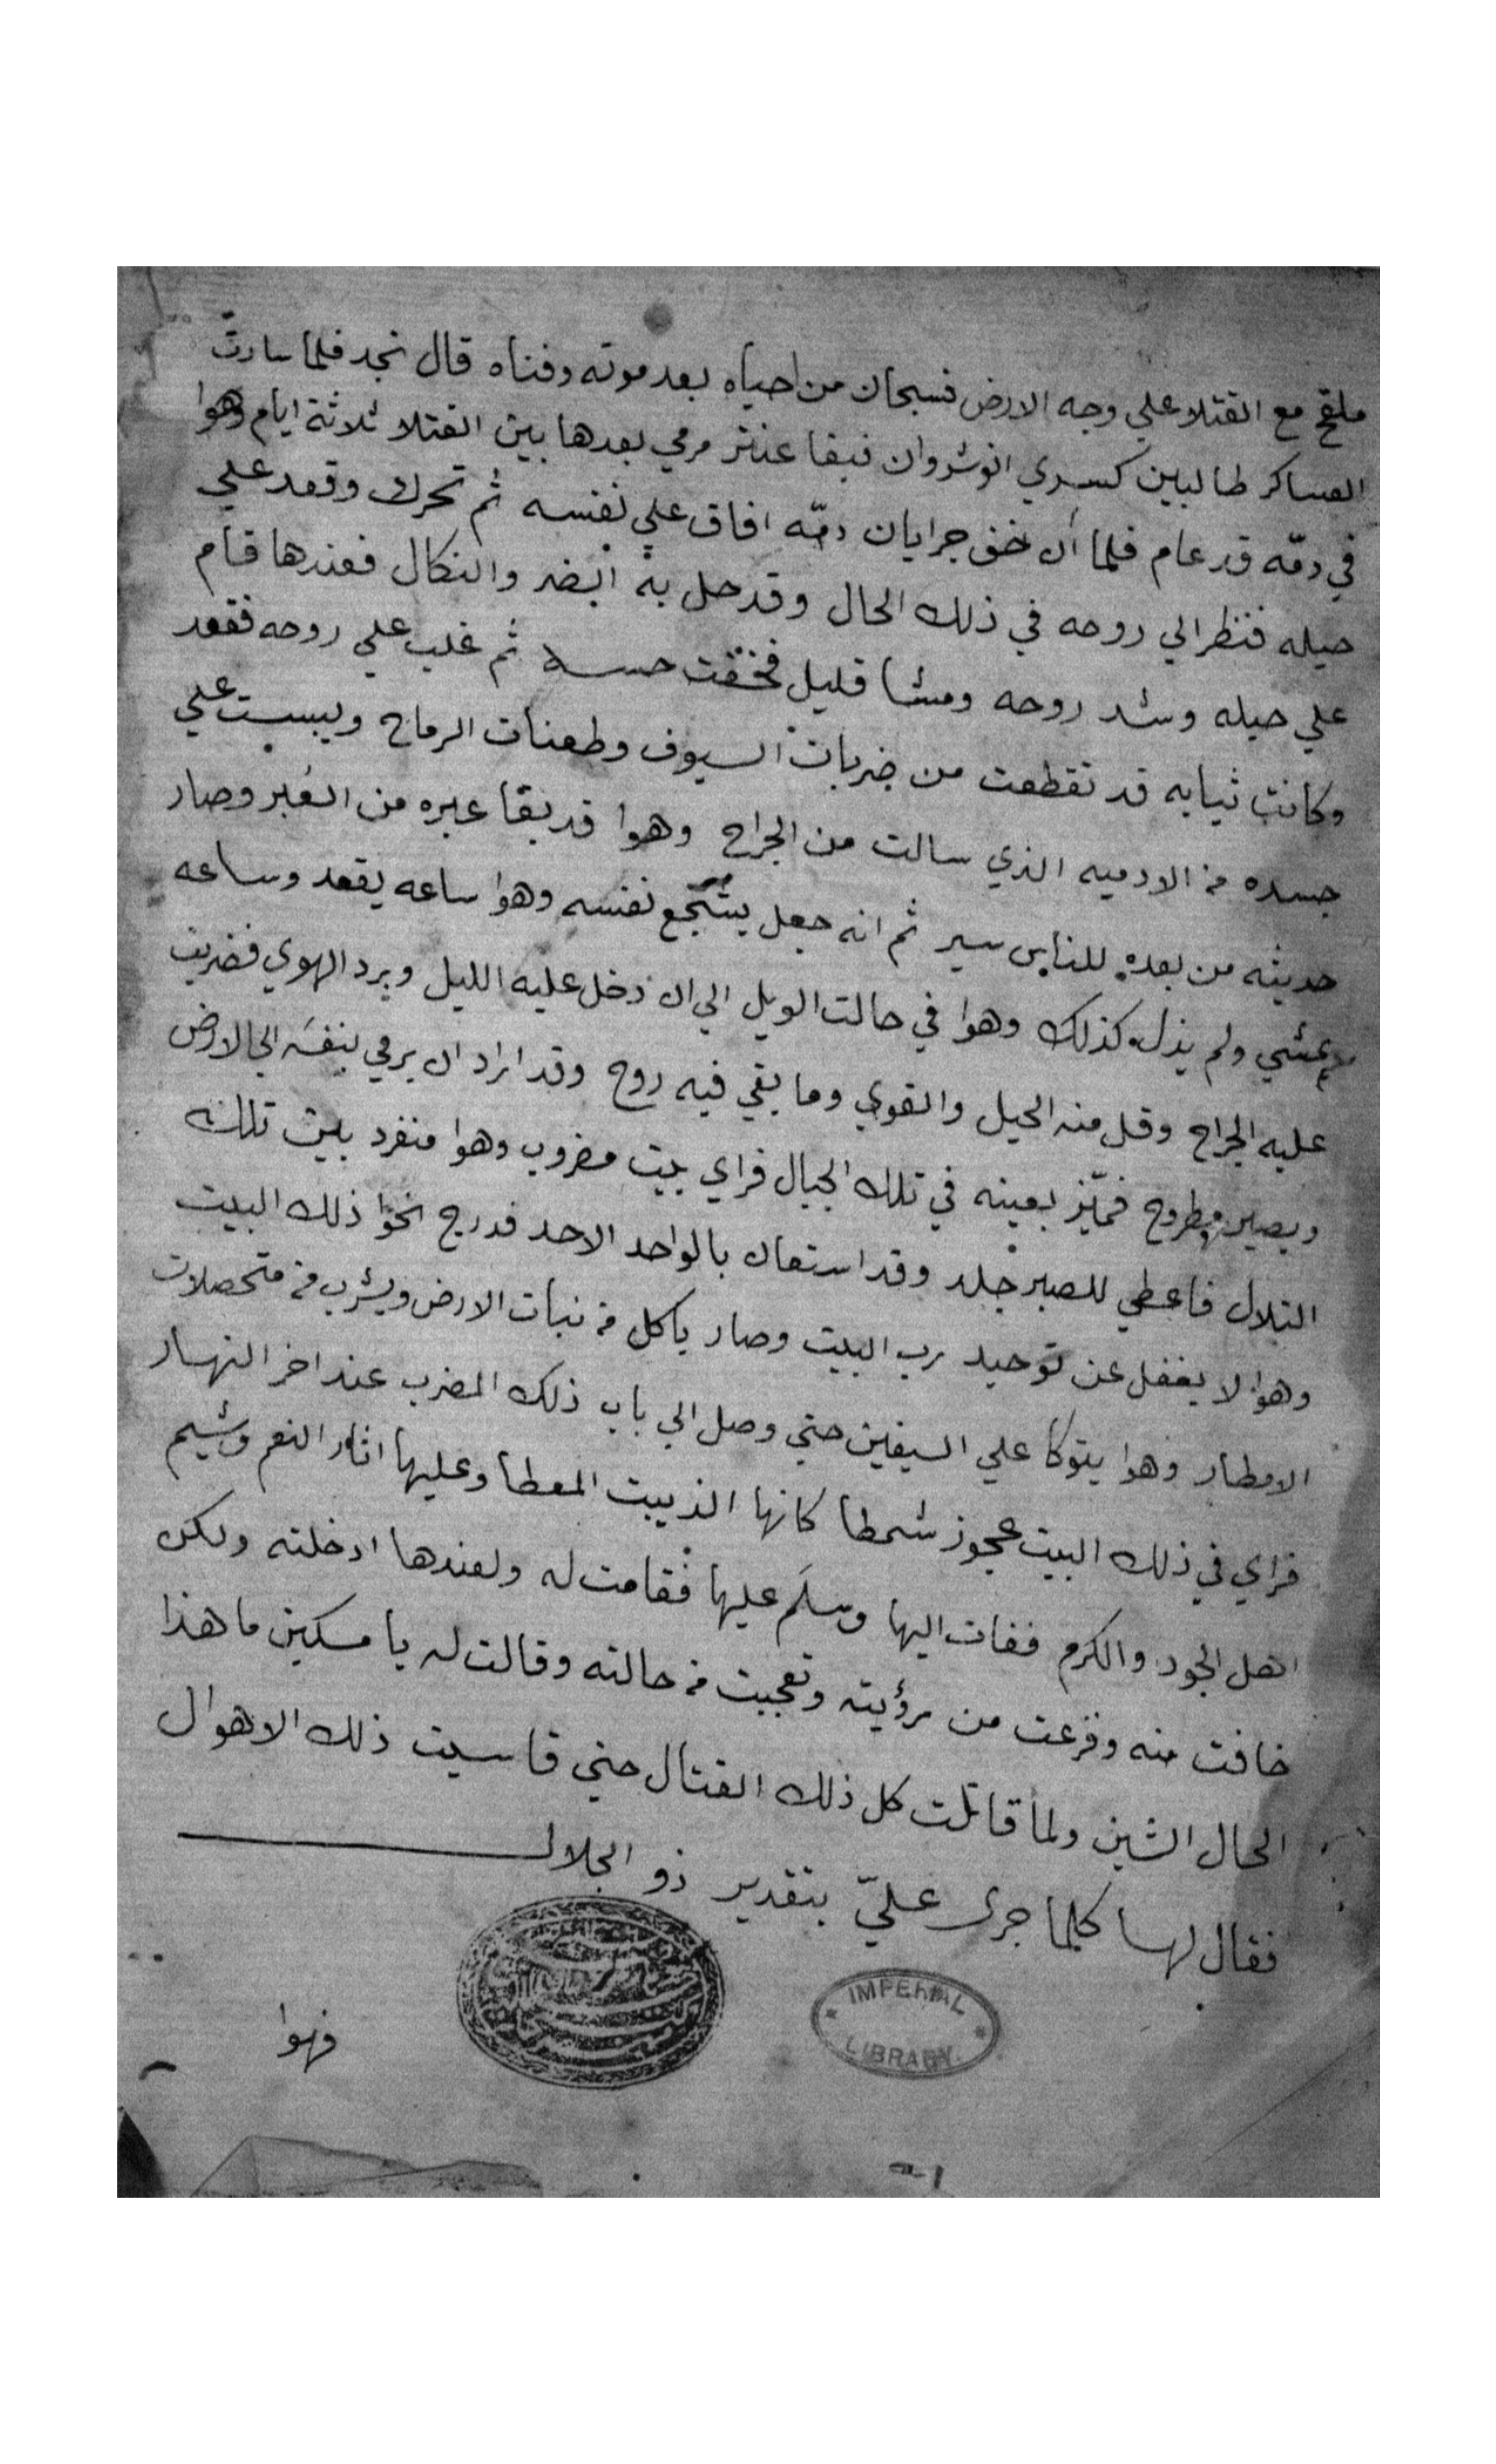 ملقح مع القتلا علي وجه الارض فسبحان من احياه بعد موته وفناه قال نجد فلما سارت
العساكر طالبين كسري انوشروان فبقا عنتر مرمي بعدها بين القتلا ثلاثة ايام وهوا
في دمّه قد عام فلما ان خف جرايان دمّه افاق علي نفسه ثم تحرك وقعد علي
حيله فنظر الي روحه في ذلك الحال وقد حل به الضر والنكال فعندها قام
علي حيله وشد روحه ومشا قليل فخفت حسه ثم غلب علي روحه فقعد
وكانت ثيابه قد تقطعت من ضربات السيوف وطعنات الرماح ويبست علي
جسده من الادميه الذي سالت من الجراح وهوا قد بقا عبره من العُبر وصار
حديثه من بعده للناس سير ثم انه جعل يشجّع نفسه وهوا ساعه يقعد وساعه
يمشي ولم يذل كذلك وهوا في حالت الويل الي ان دخل عليه الليل وبرد الهوي فضربت
عليه الجراح وقل منه الحيل والقوي وما بقي فيه روح وقد اراد ان يرمي بنفسه الي الارض
ويصير مطروح فميّز بعينه في تلك الجبال فراي بيت مضروب وهوا منفرد بين تلك
التلال فاعطي للصبر جلد وقد استعان بالواحد الاحد فدرج نحوا ذلك البيت
وهوا لا يغفل عن توحيد رب البيت وصار ياكل من نبات الارض ويشرب من متحصلات
الامطار وهوا يتوكا علي السيفين حتي وصل الي باب ذلك المضرب عند اخر النهار
فراي في ذلك البيت عجوز شمطا كانها الذيبت المعطا وعليها اثار النعم وشيم
اهل الجود والكرم ففات اليها وسلَم عليها فقامت له ولعندها ادخلته ولكن
خافت منه وفزعت من رؤيته وتعجبت من حالته وقالت له يا مسكين ما هذا
الحال الشين ولما قاتلت كل ذلك القتال حتي قاسيت ذلك الاهوال
فقال لها كلما جرى عليّ بتقدير ذو الجلال
فهوا
IMPERIAL
LIBRARY